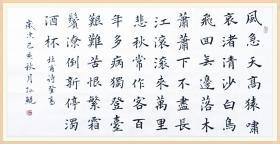 風急天高猿嘯
哀渚清沙白鳥
飛回無邊落木
蕭蕭下不盡長
江滾滾來萬里
悲秋常作客百
年多病獨登臺
艱難苦恨繁霜
鬢潦倒新停濁
酒杯 杜甫詩登高
歲次己亥秋月